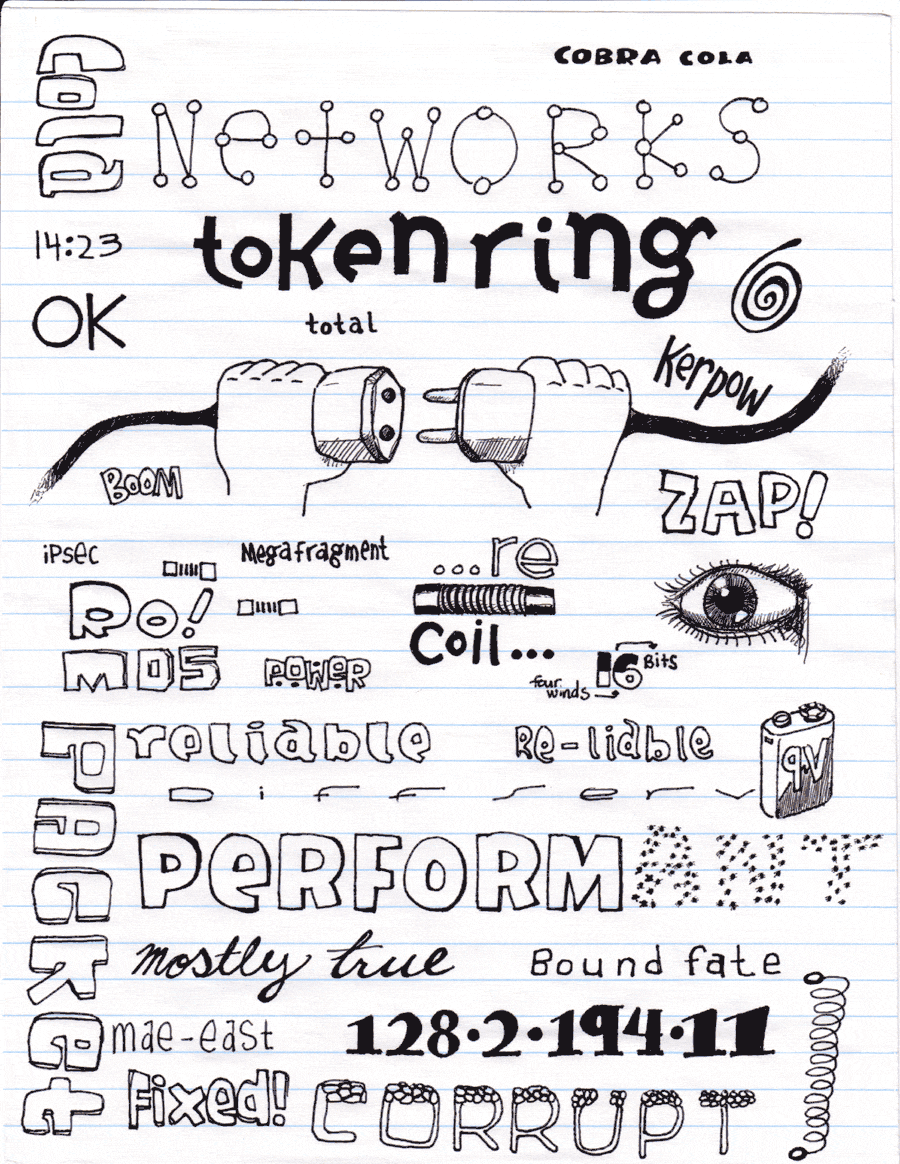 Cola
COBRA COLA
Networks
14:23
token ring
OK
total
Kerpow
BOOM
ZAP!
iPsec
Megafragment
...re
Ro!
Coil...
MD5
POWER
16 Bits
four winds
Packet
reliable
Re-lidble
9V
Diffserv
PERFORMANT
mostly true
Bound fate
mae-east
128.2.194.11
Fixed!
CORRUPT